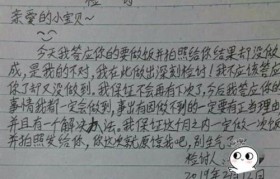 检讨
亲爱的小宝贝~
今天我答应你的要做饭并拍照给你结果却没做
成,是我的不对,我在此做出深刻检讨,我不应该答应
你了却又没做到。我保证不会再有下次,今后我答应你的
事情我都一定会做到,事出有因做不到的一定要有正当理由
并且有一个解决办法。我保证这个月之内一定做一次饭
并拍照发给你,你这次就原谅我吧,别生气了
检讨人
2019年2月12日